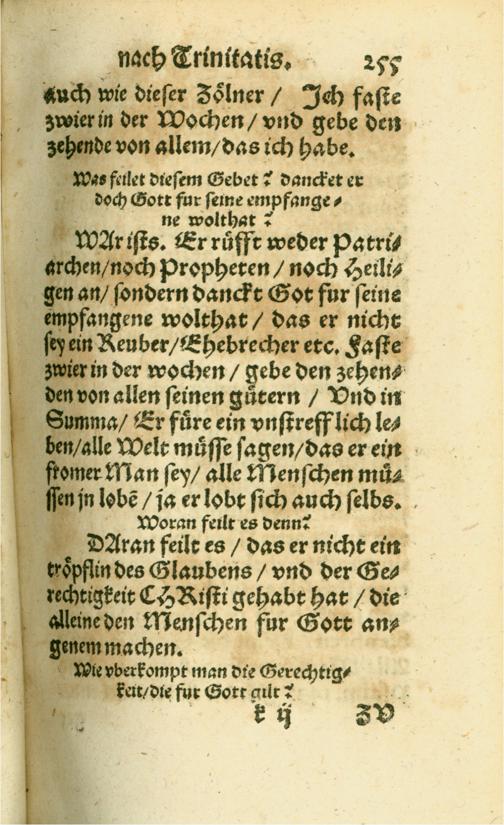 nach Trinitatis. 255
auch wie dieser Zölner / Jch faste
zwier in der Wochen / vnd gebe den
zehende von allem/das ich habe.
Was feilet diesem Gebet? dancket er
doch Gott fur seine empfange⸗
ne wolthat?
WAr ists. Er rüfft weder Patri⸗
archen/noch Propheten / noch Heili⸗
gen an/ sondern danckt Got fur seine
empfangene wolthat / das er nicht
sey ein Reuber/Ehebrecher etc. Faste
zwier in der wochen / gebe den zehen⸗
den von allen seinen gütern / Vnd in
Summa/ Er füre ein vnstrefflich le⸗
ben/alle Welt müsse sagen/das er ein
fromer Man sey/ alle Menschen mü⸗
ssen jn lobē / ja er lobt sich auch selbs.
Woran feilt es denn?
DAran feilt es / das er nicht ein
tröpflin des Glaubens / vnd der Ge⸗
rechtigkeit CHRisti gehabt hat / die
alleine den Menschen fur Gott an⸗
genem machen.
Wie vberkompt man die Gerechtig⸗
keit/die fur Gott gilt?
k ij ZV